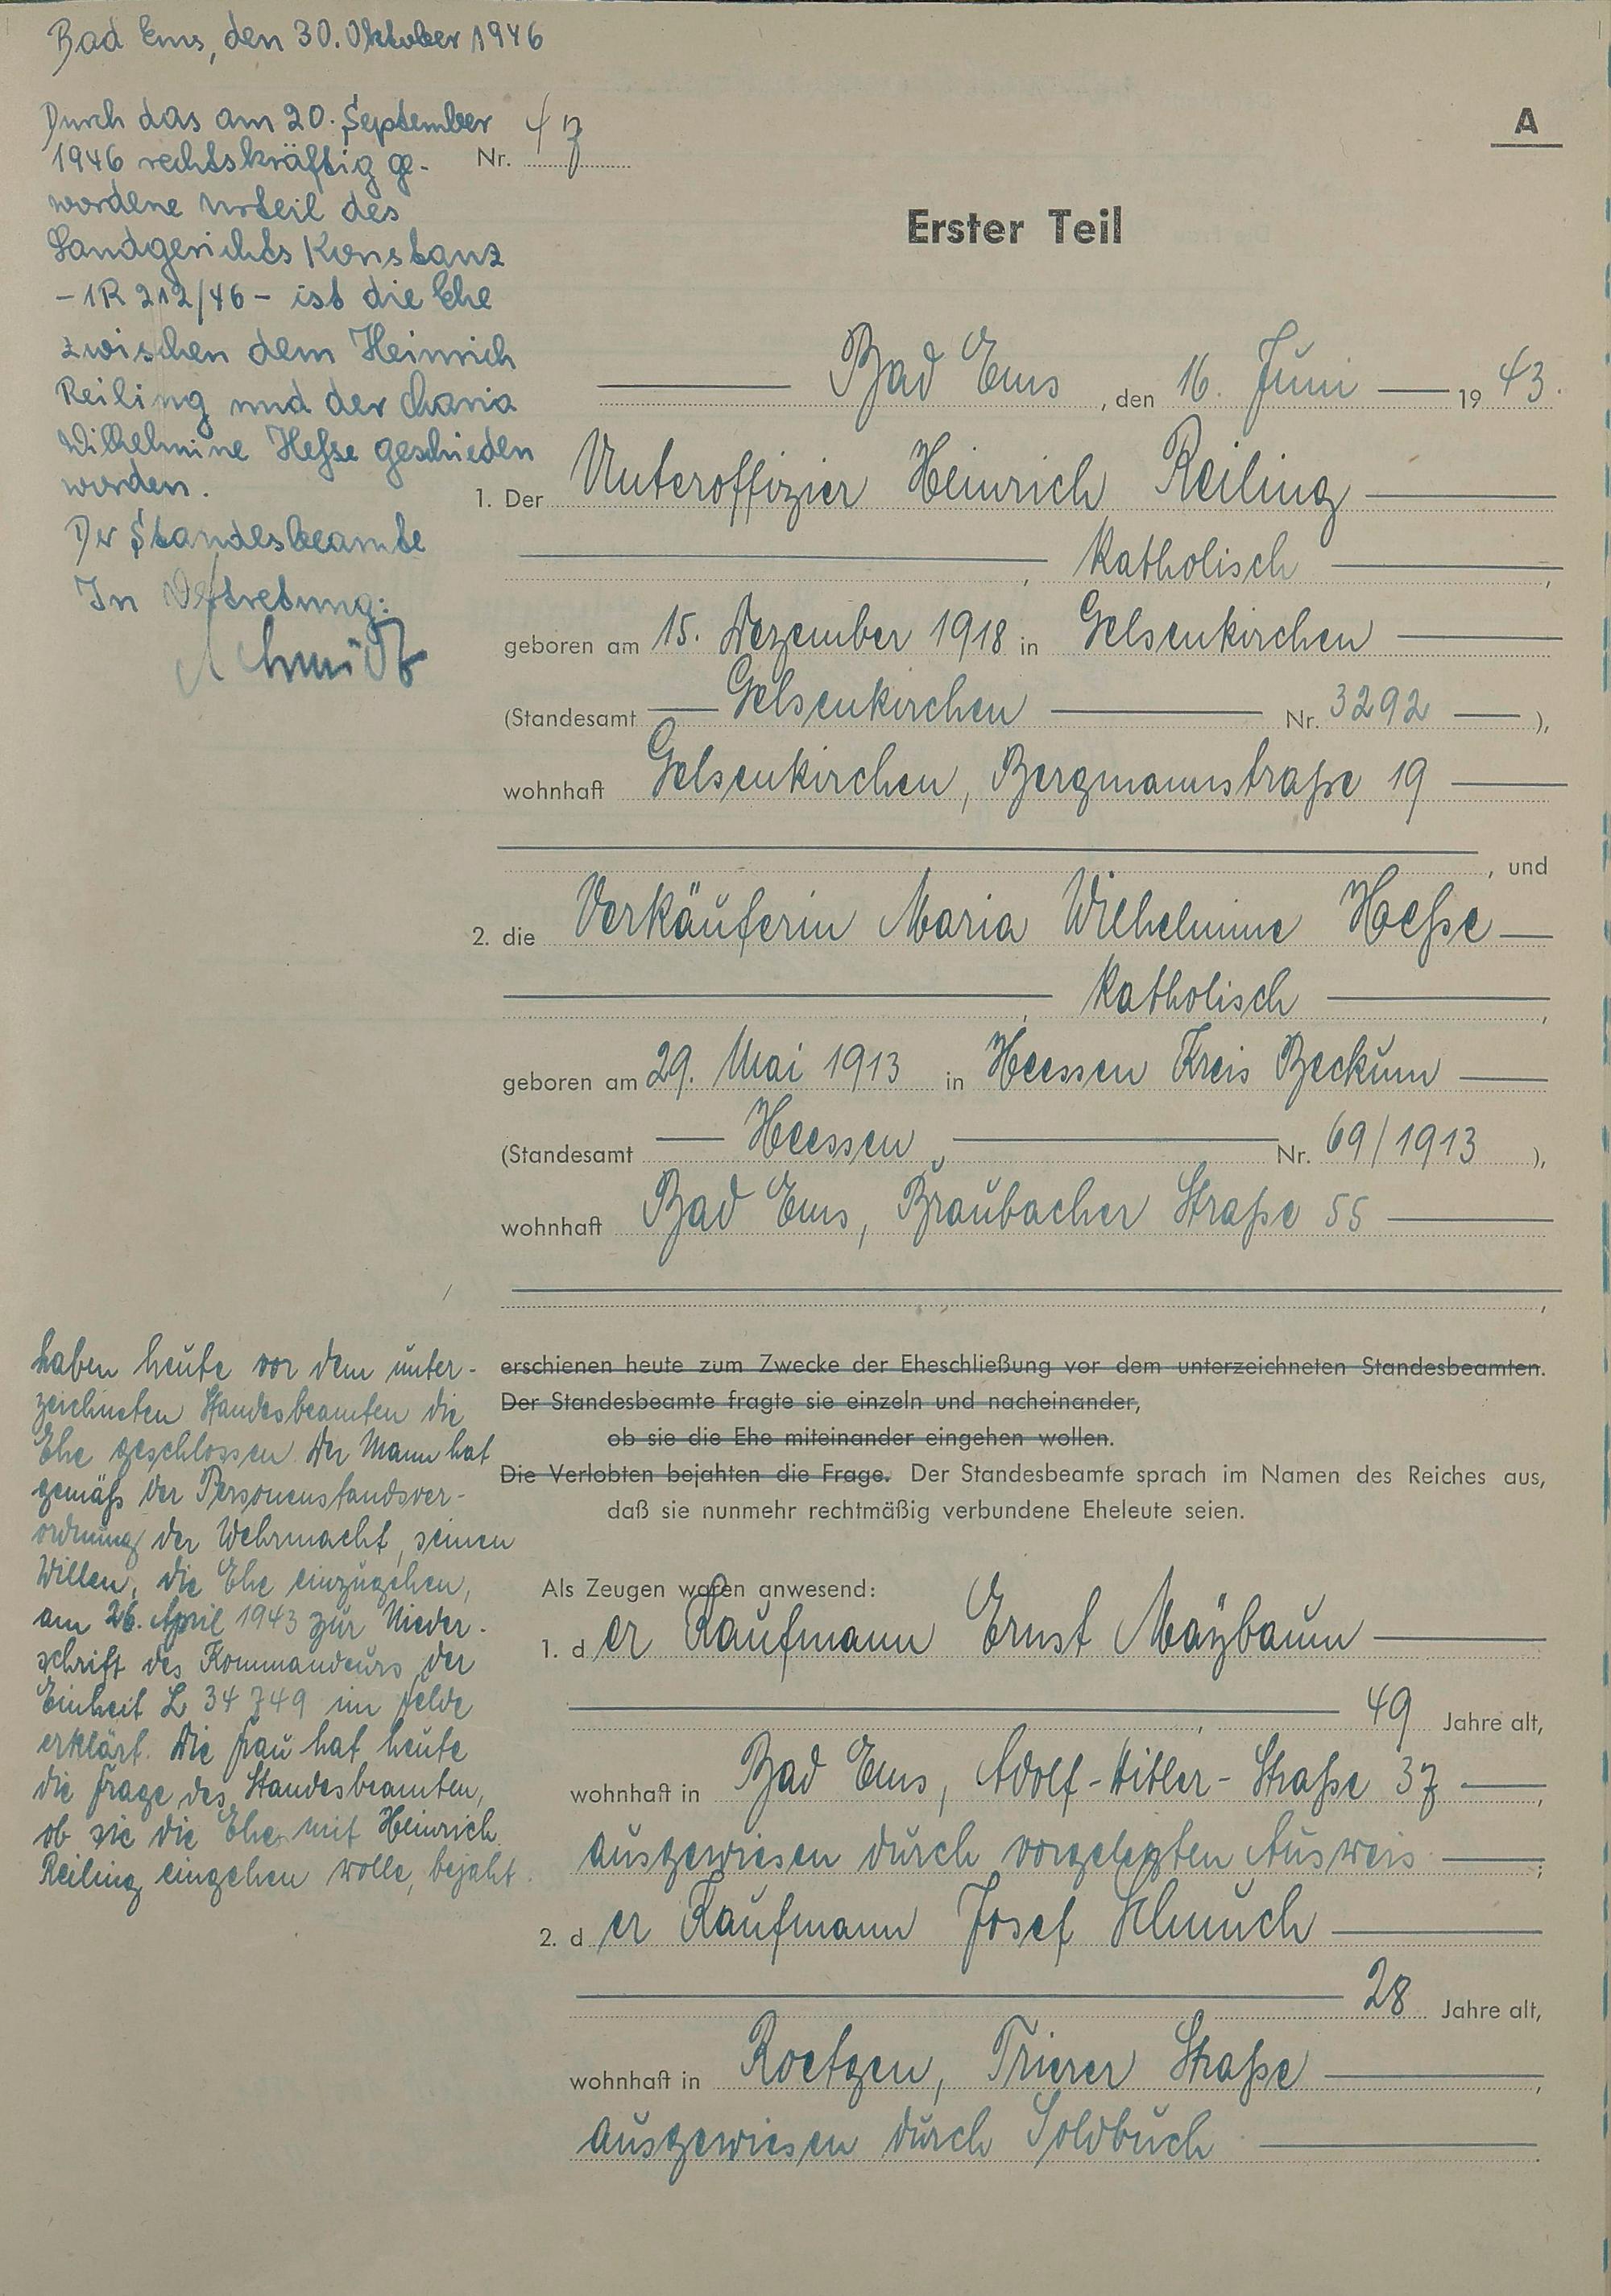 Bad Ems, den 30. Oktober 1946
Durch das am 20. September
1946 rechtskräftig ge-
wordene Urteil des
Landgerichts Konstanz
- 1R 212/46 - ist die Ehe
zwischen dem Heinrich
Reiling und der Maria
Wilhelmine Heße geschieden
worden.
Der Standesbeamte
In Vertretung:
Schmidt
A
Nr. 47
Erster Teil
Bad Ems, den 16. Juni 1943.
1. Der Unteroffizier Heinrich Reiling
, katholisch,
geboren am 15. Dezember 1918 in Gelsenkirchen
(Standesamt Gelsenkirchen Nr. 3292 ),
wohnhaft Gelsenkirchen, Bergmannstraße 19
, und
2. die Verkäuferin Maria Wilhelmine Heße
, katholisch,
geboren am 29. Mai 1913 in Heessen Kreis Beckum
(Standesamt Heessen Nr. 69/1913 ),
wohnhaft Bad Ems, Braubacher Straße 55
,
haben heute vor dem unter-
zeichneten Standesbeamten die
Ehe geschlossen. Der Mann hat
gemäß der Personenstandsver-
ordnung der Wehrmacht, seinen
Willen, die Ehe einzugehen,
am 26. April 1943 zur Nieder-
schrift des Kommandeurs der
Einheit L 34749 im Felde
erklärt. Die Frau hat heute
die Frage des Standesbeamten,
ob sie die Ehe mit Heinrich
Reiling eingehen wolle, bejaht.
erschienen heute zum Zwecke der Eheschließung vor dem unterzeichneten Standesbeamten.
Der Standesbeamte fragte sie einzeln und nacheinander,
ob sie die Ehe miteinander eingehen wollen.
Die Verlobten bejahten die Frage. Der Standesbeamte sprach im Namen des Reiches aus,
daß sie nunmehr rechtmäßig verbundene Eheleute seien.
Als Zeugen waren anwesend:
1. der Kaufmann Ernst Maÿbaum
, 49 Jahre alt,
wohnhaft in Bad Ems, Adolf-Hitler-Straße 37,
ausgewiesen durch vorgelegten Ausweis;
2. der Kaufmann Josef
28 Jahre alt,
wohnhaft in Roetgen, Trierer Straße,
ausgewiesen durch Soldbuch.